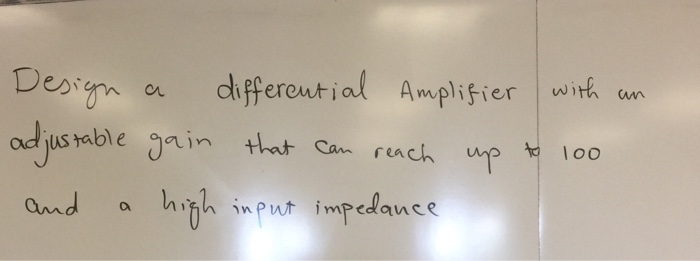 Design a differential Amplifier with an
adjustable gain that can reach up to 100
and a high input impedance